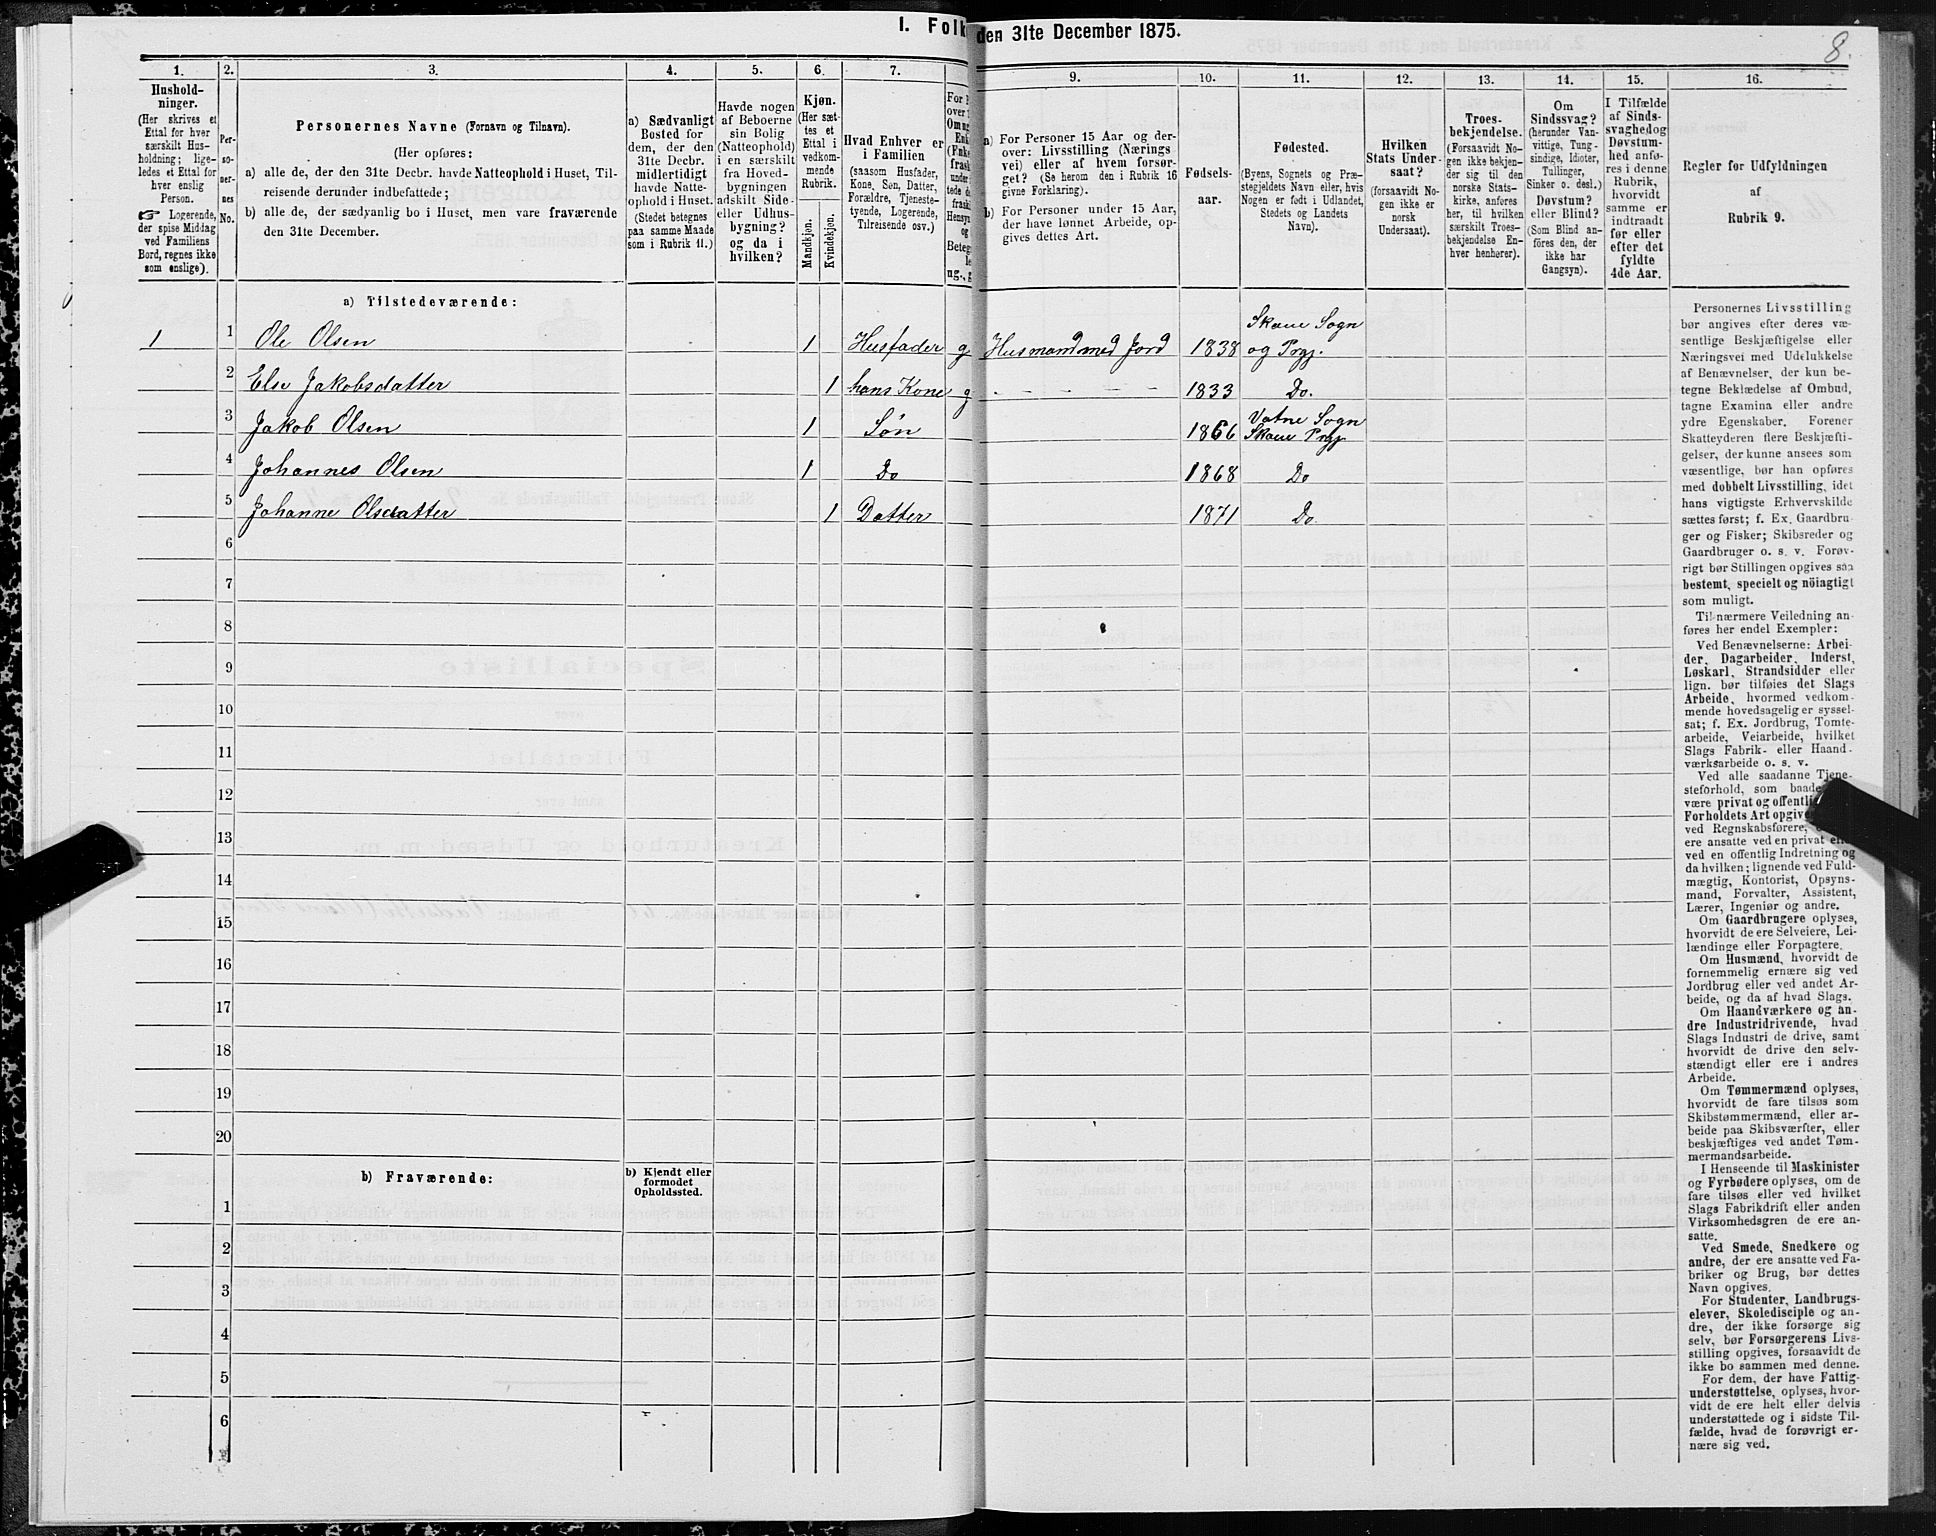 I. Folk
den 31te December 1875.
8.
1.
2.
3.
4.
5.
6.
7.
9.
10.
11.
12.
13.
14.
15.
16.
Hushold-
ninger.
(Her skrives et
Ettal for hver
særskilt Hus-
holdning; lige-
ledes et Ettal for
hver enslig
Person.
☞ Logerende,
der spise Middag
ved Familiens
Bord, regnes ikke
som enslige).
Per-
so-
ner-
nes
No.
Personernes Navne (Fornavn og Tilnavn).
(Her opføres:
a) alle de, der den 31te Decbr. havde Natteophold i Huset, Til-
reisende derunder indbefattede;
b) alle de, der sædvanlig bo i Huset, men vare fraværende
den 31te December.
a) Sædvanligt
Bosted for
dem, der den
31te Decbr.
midlertidigt
havde Natte-
ophold i Huset.
(Stedet betegnes
paa samme Maade
som i Rubrik 11.)
Havde nogen
af Beboerne
sin Bolig
(Natteophold)
i en særskilt
fra Hoved-
bygningen
adskilt Side-
eller Udhus-
bygning?
og da i
hvilken?
Kjøn.
(Her sæt-
tes et
Ettal i
vedkom-
mende
Rubrik.
Mandkjøn.
Kvindekjøn.
Hvad Enhver er
i Familien
(saasom Husfader,
Kone, Søn, Datter,
Forældre, Tjeneste-
tyende, Logerende,
Tilreisende osv.)
a) For Personer 15 Aar og der-
over: Livsstilling (Nærings
vei) eller af hvem forsør-
get? (Se herom den i Rubrik 16
givne Forklaring).
b) For Personer under 15 Aar,
der have lønnet Arbeide, op-
gives dettes Art.
Fødsels-
aar.
Fødested.
(Byens, Sognets og Præ-
stegjeldets Navn eller, hvis
Nogen er født i Udlandet,
Stedets og Landets
Navn).
Hvilken
Stats Under-
saat?
(forsaavidt No-
gen ikke er
norsk
Undersaat).
Troes-
bekjendelse.
(Forsaavidt No-
gen ikke bekjen-
der sig til den
norske Stats-
kirke, anføres
her, til hvilken
særskilt Troes-
bekjendelse En-
hver henhører).
Om
Sindssvag?
(herunder Van-
vittige, Tung-
sindige, Idioter,
Tullinger,
Sinker o. desl.)
Døvstum?
eller Blind?
(Som Blind an-
føres den, der
ikke har
Gangsyn).
I Tilfælde
af Sinds-
svaghedog
Døvstum-
hed anfø-
res i denne
Rubrik,
hvorvidt
samme er
indtraadt
før eller
efter det
fyldte
4de Aar.
Regler for Udfyldningen
af
Rubrik 9.
a) Tilstedeværende:
1 1 Ole Olsen 1 Husfader g Husmand med Jord 1838 Skaue Sogn
og Prgj.
2 Else Jakobsdatter 1 hans Kone g - - - - 1833 Do.
3 Jakob Olsen 1 Søn 1866 Vatne Sogn
Skaue Prgj
4 Johannes Olsen 1 Do 1868 Do
5 Johanne Olsdatter 1 Datter 1871 Do.
6
7
8
9
10
11
12
13
14
15
16
17
18
19
20
b) Fraværende:
b) Kjendt eller
formodet
Opholdssted.
1
2
3
4
5
6
Personernes Livsstilling
bør angives efter deres væ-
sentlige Beskjæftigelse eller
Næringsvei med Udelukkelse
af Benævnelser, der kun be-
tegne Beklædelse af Ombud,
tagne Examina eller andre
ydre Egenskaber. Forener
Skatteyderen flere Beskjæfti-
gelser, der kunne ansees som
væsentlige, bør han opføres
med dobbelt Livsstilling, idet
hans vigtigste Erhvervskilde
sættes først; f. Ex. Gaardbru-
ger og Fisker; Skibsreder og
Gaardbruger o. s. v. Forøv-
rigt bør Stillingen opgives saa
bestemt, specielt og nöiagtigt
som muligt.
Til nærmere Veiledning an-
føres her endel Exempler:
Ved Benævnelserne: Arbei-
der, Dagarbeider, Inderst,
Løskarl, Strandsidder eller
lign. bør tilføies det Slags
Arbeide, hvormed vedkom-
mende hovedsagelig er syssel-
sat; f. Ex. Jordbrug, Tomte-
arbeide, Veiarbeide, hvilket
Slags Fabrik- eller Haand-
værksarbeide o. s. v.
Ved alle saadanne Tjene-
steforhold, som baade
være privat og offentli
Forholdets Art opgive
ved Regnskabsførere,
ere ansatte ved en privat
ved en offentlig Indretning og
da hvilken; lignende ved Fuld-
mægtig, Kontorist, Opsyns-
mand, Forvalter, Assistent,
Lærer, Ingeniør og andre.
Om Gaardbrugere oplyses,
hvorvidt de ere Selveiere, Lei-
lændinge eller Forpagtere.
Om Husmænd, hvorvidt de
fornemmelig ernære sig ved
Jordbrug eller ved andet Ar-
beide, og da af hvad Slags.
Om Haandværkere og an-
dre Industridrivende, hvad
Slags Industri de drive, samt
hvorvidt de drive den selv-
stændigt eller ere i andres
Arbeide.
Om Tømmermænd oplyses,
hvorvidt de fare tilsøs som
Skibstømmermænd, eller ar-
beide paa Skibsværfter, eller
beskjæftiges ved andet Tøm-
mermandsarbeide.
I Henseende til Maskinister
og Fyrbødere oplyses, om de
fare tilsøs eller ved hvilket
Slags Fabrikdrift eller anden
Virksomhedsgren de ere an-
satte.
Ved Smede, Snedkere og
andre, der ere ansatte ved Fa-
briker og Brug, bør dettes
Navn opgives.
For Studenter, Landbrugs-
elever, Skoledisciple og an-
dre, der ikke forsørge sig
selv, bør Forsørgerens Livs-
stilling opgives, forsaavidt de
ikke bo sammen med denne.
For dem, der have Fattig-
understøttelse, oplyses, hvor-
vidt de ere helt eller delvis
understøttede og i sidste Til-
fælde, hvad de forøvrigt er-
nære sig ved.